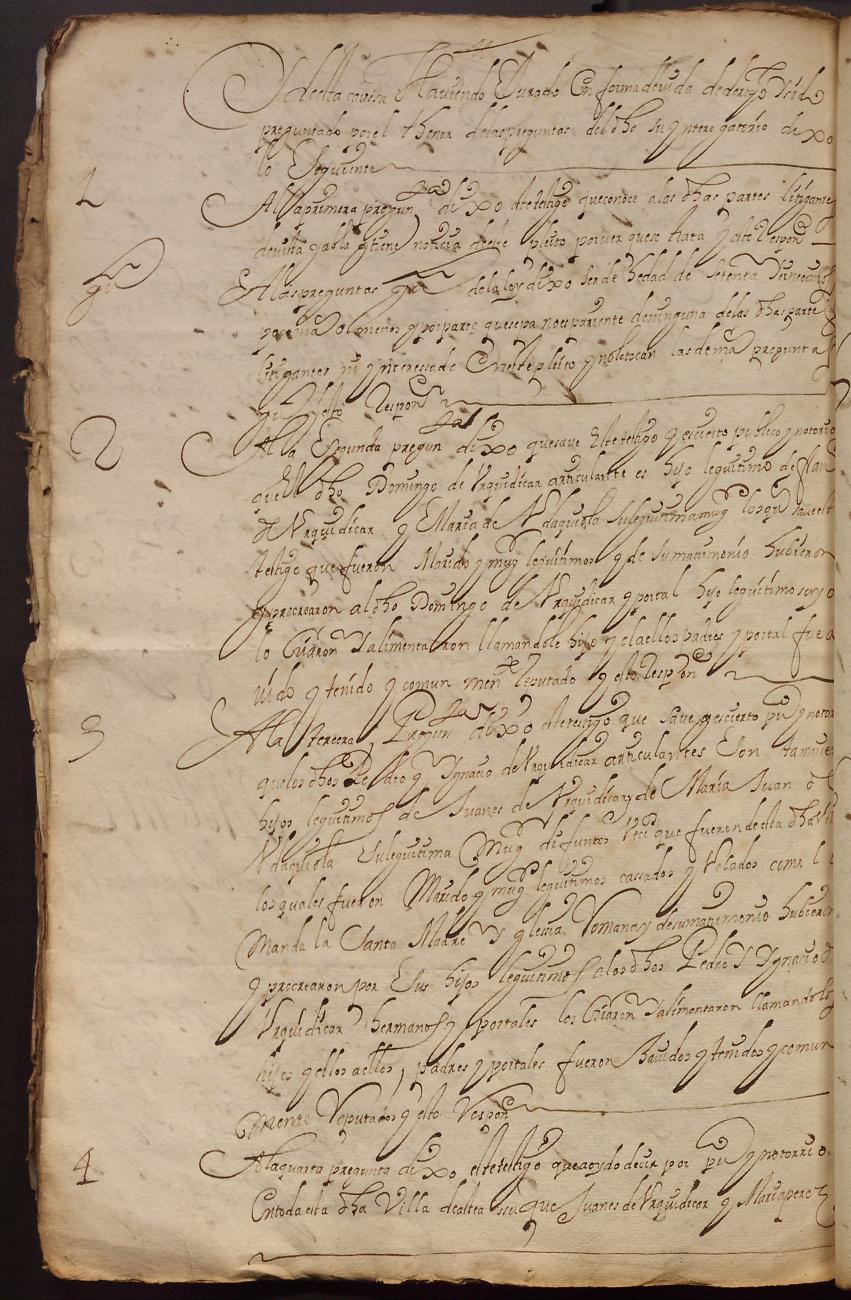 desta caussa Haviendo Jurado en forma devida de derecho Ysido
preguntado por el thenor de las preguntas del dho Su ynterrogatorio dixo
lo Seguiente
1 A la primera pregunta dixo este testigo que conoce a los dhas partes litigantes
de vista y abla y tiene noticia deste pleito por ver que se trata y esto Respon
ges A las preguntas ges de la ley dixo ser de hedad de setenta
poco mas o menos y por parte que sepa no es pariente de ninguna de las dhas partes
litigantes ni ynteressado en este pleito y no le tocan las demas preguntas
ges y esto Respon
2 A la Segunda pregunta dixo que save este testigo y es cierto publico y notorio
que el dho Domingo de Urquidicar articulante es hijo legitimo de Juan
de Urquidicar y Maria de Udaquiola su legitima muger los que save este
testigo que fueron Marido y muger legitimos y de su matrimonio hubieron
y procrearon al dho Domingo de Urquidicar y por tal hijo legitimo suyo
lo Criaron Yalimentaron llamandole hijo y el a ellos padres y por tal fue a
vido y tenido y comun mente Reputado y esto Respon
3 A la tercera Pregunta dixo este testigo que save y es cierto puco y notorio
que los dhos Pedro y Ygnacio de Urquidicar articulantes Son
hijos legitimos de Juanes de Urquidicar y de Maria Juan de
Udaquiola Su legitima Muger difuntos Veci que fueron de esta dha Villa
los quales fueron Marido y muger legitimos cassados y Velados como lo
Manda la Santa Madre Yglesia Romana y de su matrimonio hubieron
y procrearon por Sus hijos legitimos a los dhos Pedro Y Ygnacio de
Urquidicar hermanos y por tales los Criaron Yalimentaron llamandoles
hijos y ellos a ellos, padres y por tales fueron Bavidos y tenidos y comun
Mente Reputados y esto Respon
4 A la quarta pregunta dixo este testigo que a oydo decir por puco y notorrio
En toda esta dha Villa que Juanes de Urquidicar y Maria perez